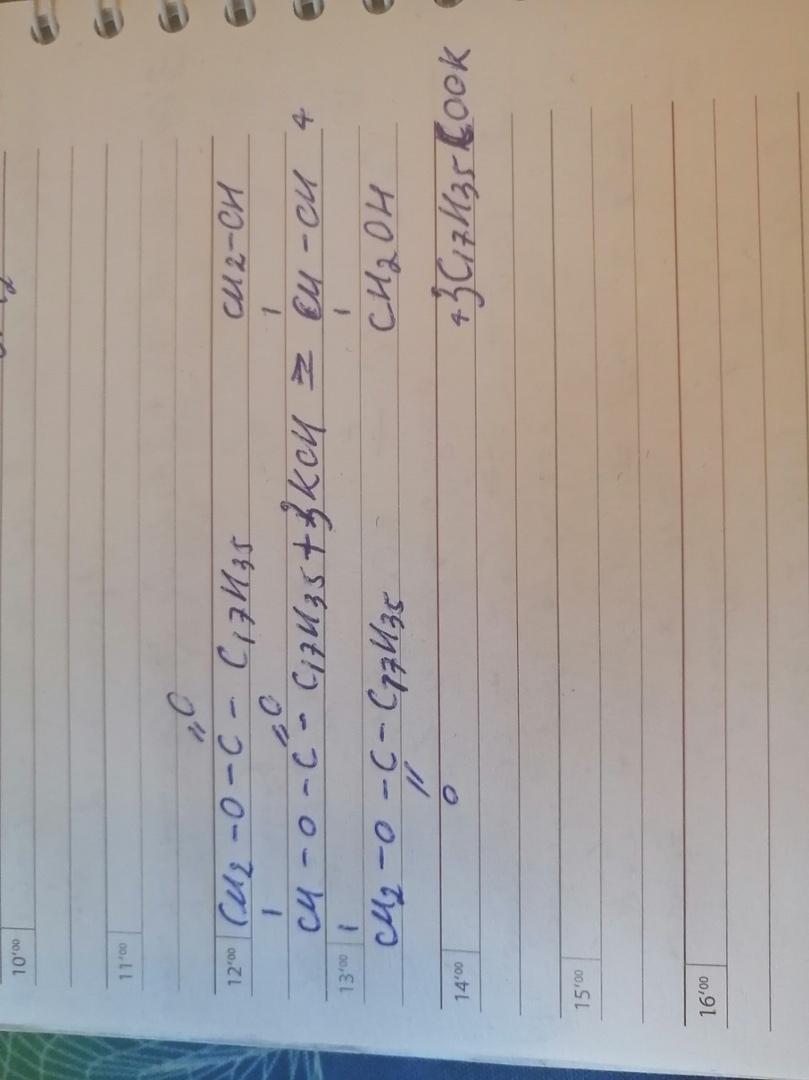 10'00
11'00
"O
12'00 CH2-O-C-C17H35 CH2-CH
"O
CH-O-C-C17H35+3KCH = CH-CH 4
13'00
CH2-O-C-C17H35 CH2OH
"
14'00 O +3C17H35COOK
15'00
16'00